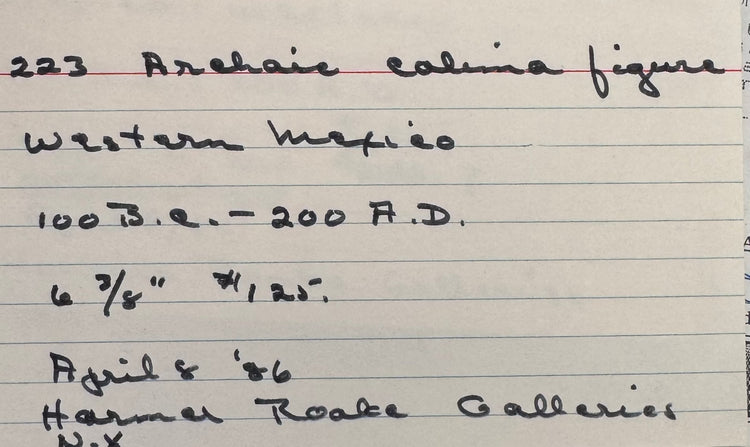 223 Archaic Colima figure
Western Mexico
100 B.C. - 200 A.D.
6 3/8" $125.
April 8 '86
Harmer Rooke Galleries
N.Y.